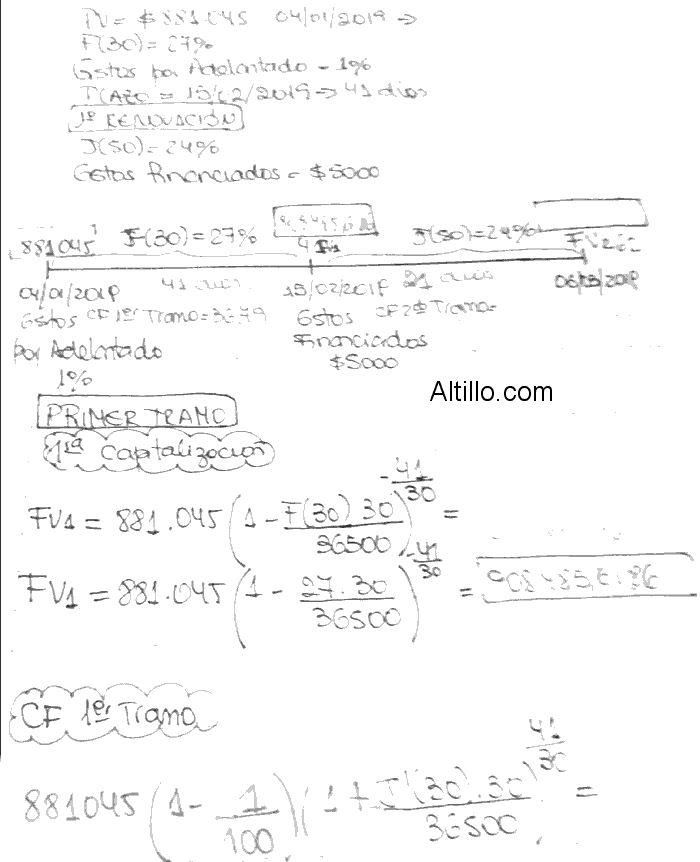 PV = $881.045 04/01/2019 →
F(30) = 27%
Gstos por Adelantado = 1%
→ 41 dias
1º RENOVACIÓN
J(50) = 24%
Gstos Financiados = $5000
881045 F(30) = 27% J(50) = 24%
04/01/2019 41 dias 15/02/2019 21 dias 06/03/2019
Gstos CF 1er Tramo = 36.79 Gstos CF 2do Tramo =
por Adelantado Financiados
1% $5000
Altillo.com
PRIMER TRAMO
1ra Capitalización
FV1 = 881.045 (1 - F(30) 30 / 36500)^-41/30 =
FV1 = 881.045 (1 - 27.30 / 36500)^-41/30 =
CF 1er Tramo
881045 (1 - 1/100) (1 + J(30).30 / 36500)^41/30 =